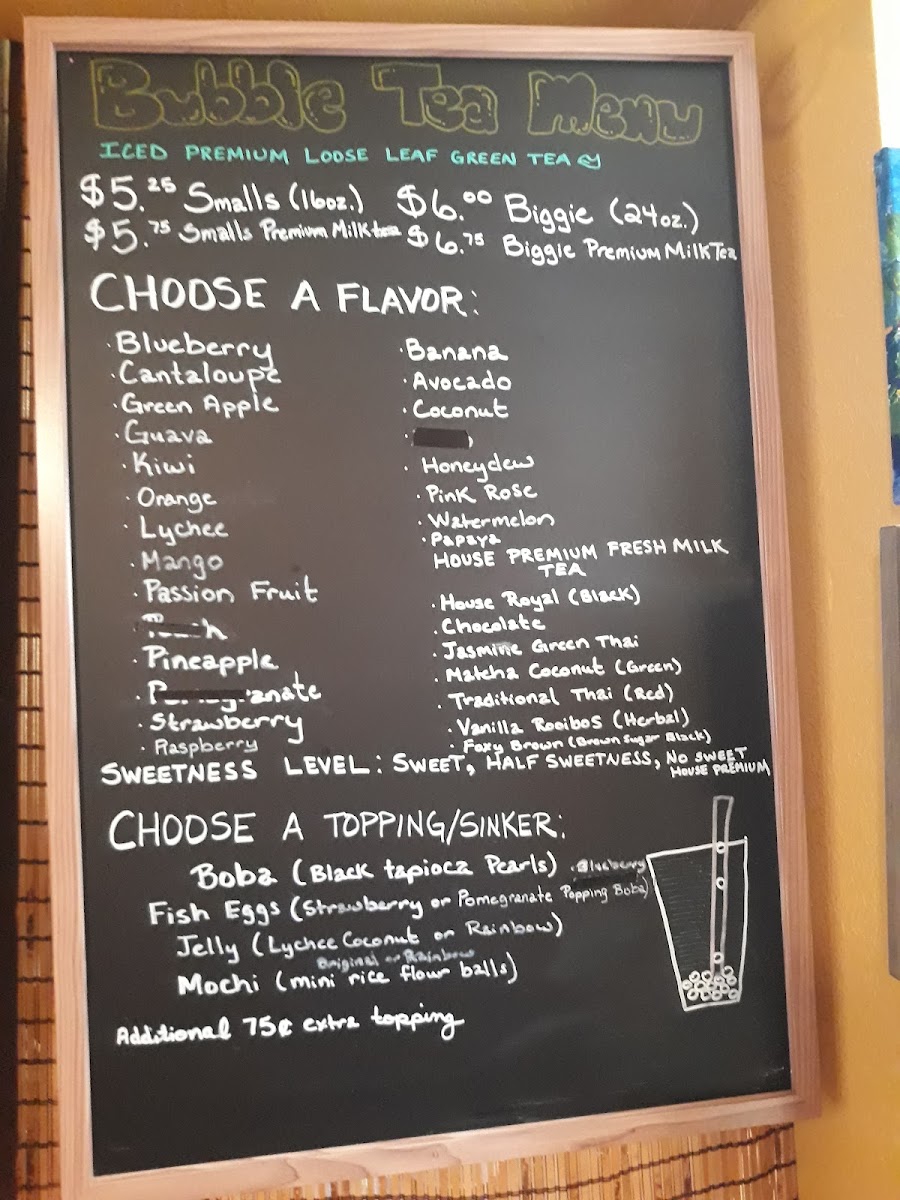 Bubble Tea Menu
ICED PREMIUM LOOSE LEAF GREEN TEA
$5.25 Smalls (16oz.)
$5.75 Smalls Premium Milk tea
$6.00 Biggie (24oz.)
$6.75 Biggie Premium Milk Tea
CHOOSE A FLAVOR:
· Blueberry
· Cantaloupe
· Green Apple
· Guava
· Kiwi
· Orange
· Lychee
· Mango
· Passion Fruit
· Pineapple
· Strawberry
· Raspberry
· Banana
· Avocado
· Coconut
· Honeydew
· Pink Rose
· Watermelon
· Papaya
HOUSE PREMIUM FRESH MILK
TEA
· House Royal (Black)
· Chocolate
· Jasmine Green Thai
· Matcha Coconut (Green)
· Traditional Thai (Red)
· Vanilla Rooibos (Herbal)
· Foxy Brown (Brown Sugar Black)
SWEETNESS LEVEL: SWEET, HALF SWEETNESS, NO SWEET
HOUSE PREMIUM
CHOOSE A TOPPING/SINKER:
Boba (Black tapioca Pearls) · Blueberry
Fish Eggs (Strawberry or Pomegranate Popping Boba)
Jelly (Lychee Coconut or Rainbow)
Original or Rainbow
Mochi (mini rice flour balls)
Additional 75¢ extra topping